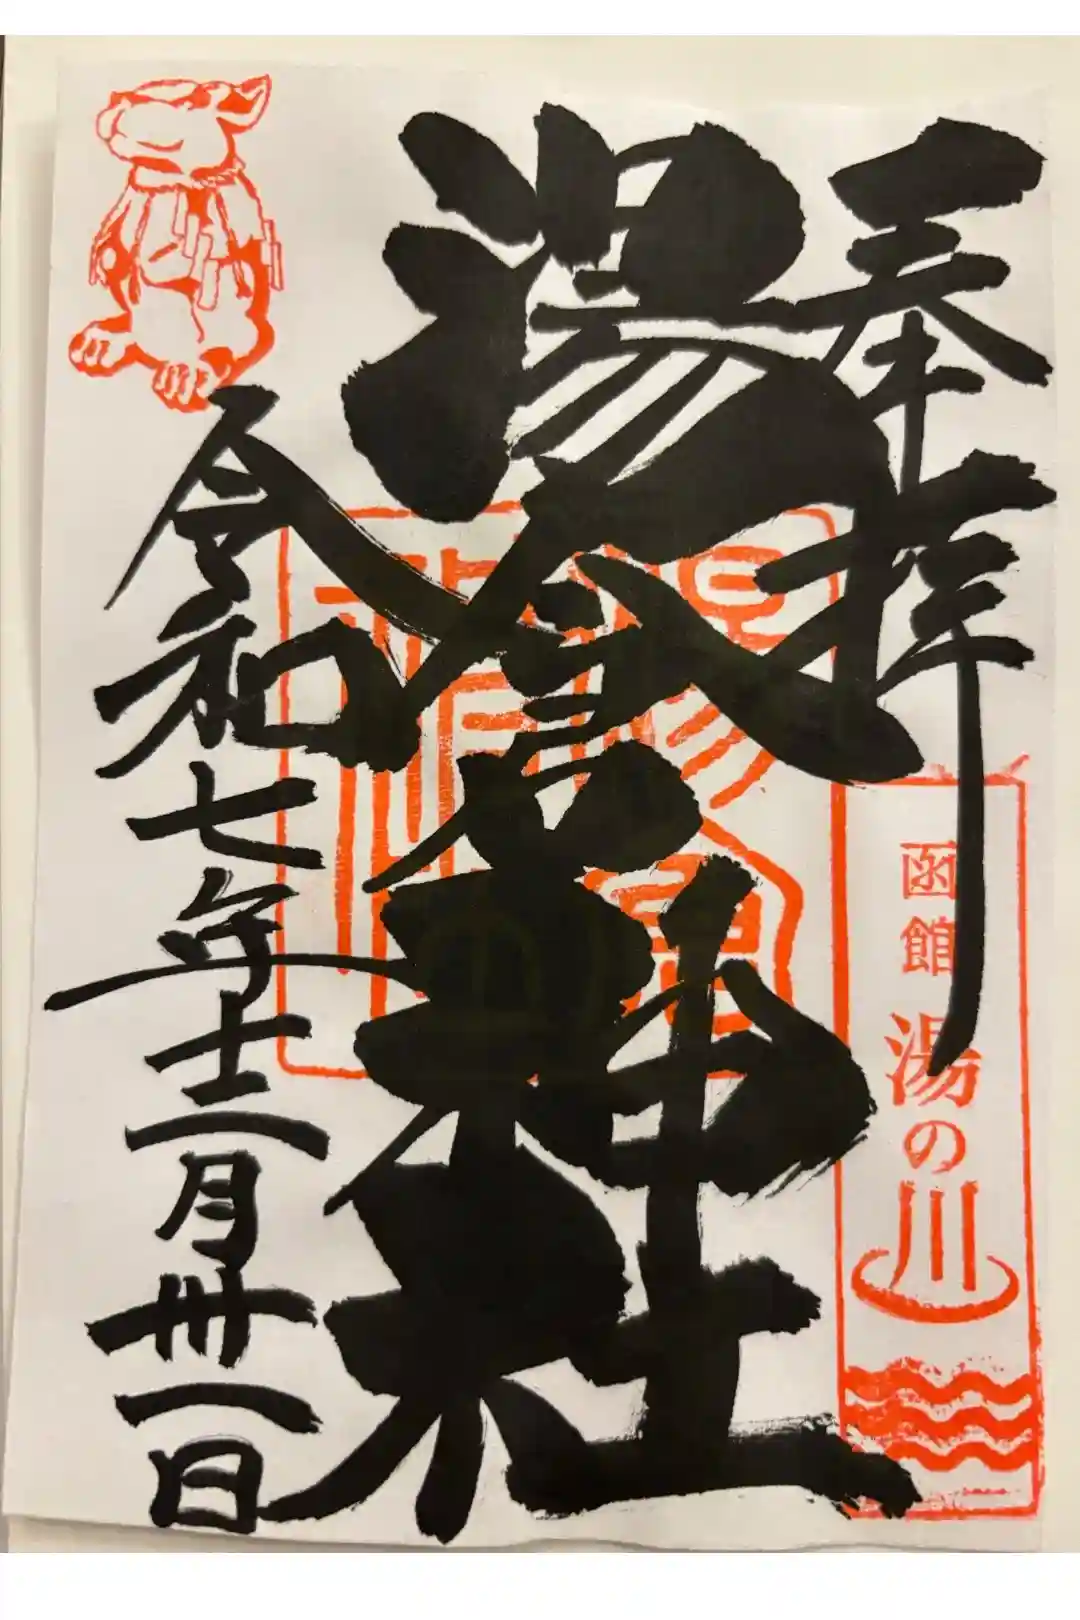 奉拝
函館 湯の川
湯倉神社
令和七年十二月卅一日